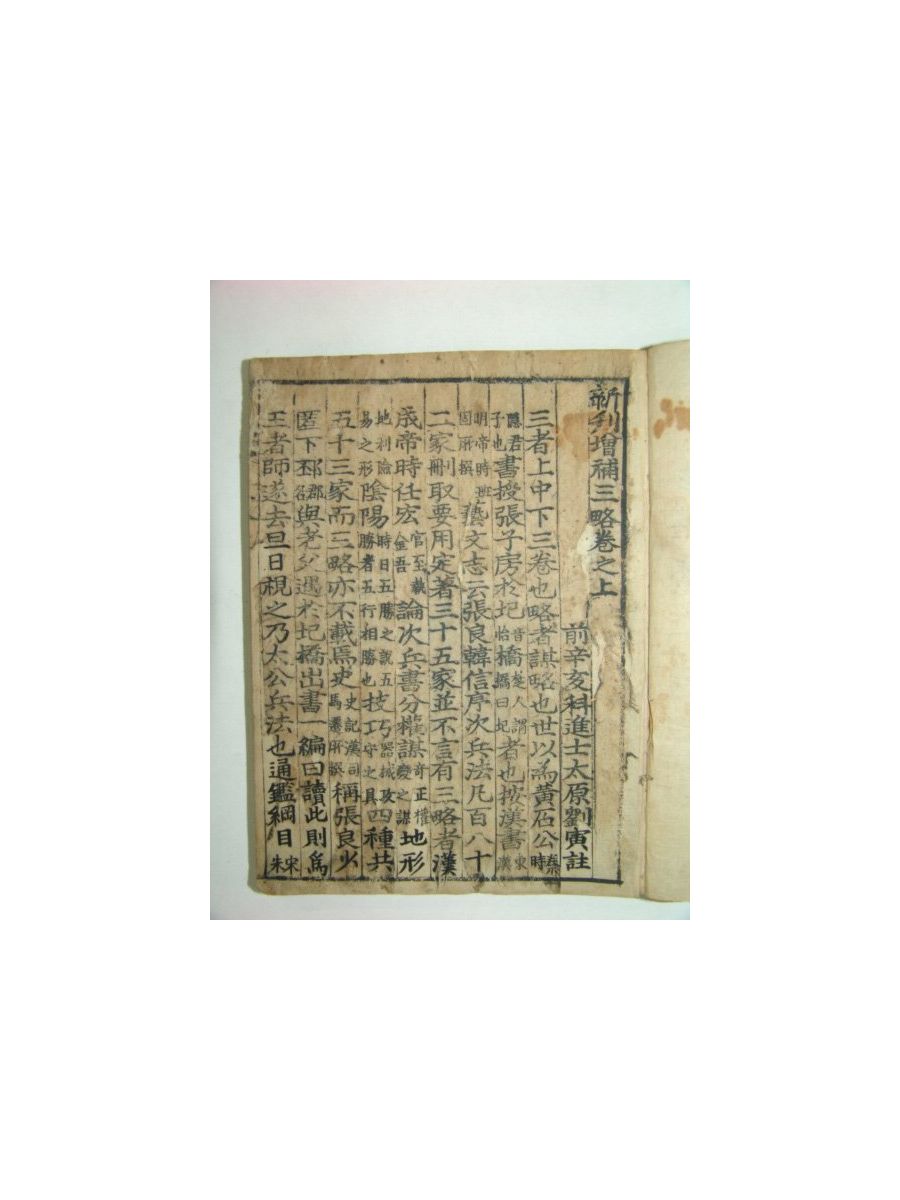 新刊增補三略卷之上
前辛亥科進士太原劉寅註
三者上中下三卷也略者謀略也世以為黃石公秦時
隱君子也書授張子房於圯音怡楚人謂橋曰圯橋者也按漢書東漢
明帝時班固所撰藝文志云張良韓信序次兵法凡百八十
二家刪取要用定著三十五家並不言有三略者漢
成帝時任宏官至執金吾論次兵書分權謀奇正權變之謀地形
地利險易之形陰陽時日五勝之說五勝者五行相勝也技弓器械攻守之具四種共
五十三家而三略亦不載焉史史記漢司馬遷所撰稱張良少
匿下邳郡名與老父遇於圯橋出書一編曰讀此則為
王者師遂去旦日視之乃太公兵法也通鑑綱目宋朱